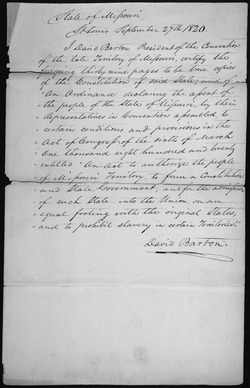 State of Missouri
St Louis September 27th 1820.
I David Barton President of the Convention
of the late Territory of Missouri, certify the
foregoing thirty nine pages to be true copies
of the Constitution of said State, and of
"An Ordinance declaring the assent of
" the people of the State of Missouri, by their
" Representatives in Convention assembled to
" certain conditions and provisions in the
" Act of Congress of the sixth of March
" one thousand eight hundred and twenty
" entitled "An Act to authorize the people
" of Missouri Territory, to form a Constitution
" and State Government, and for the admission
" of such State into the Union, on an
" equal footing with the original States,
" and to prohibit slavery in certain Territories."
David Barton.